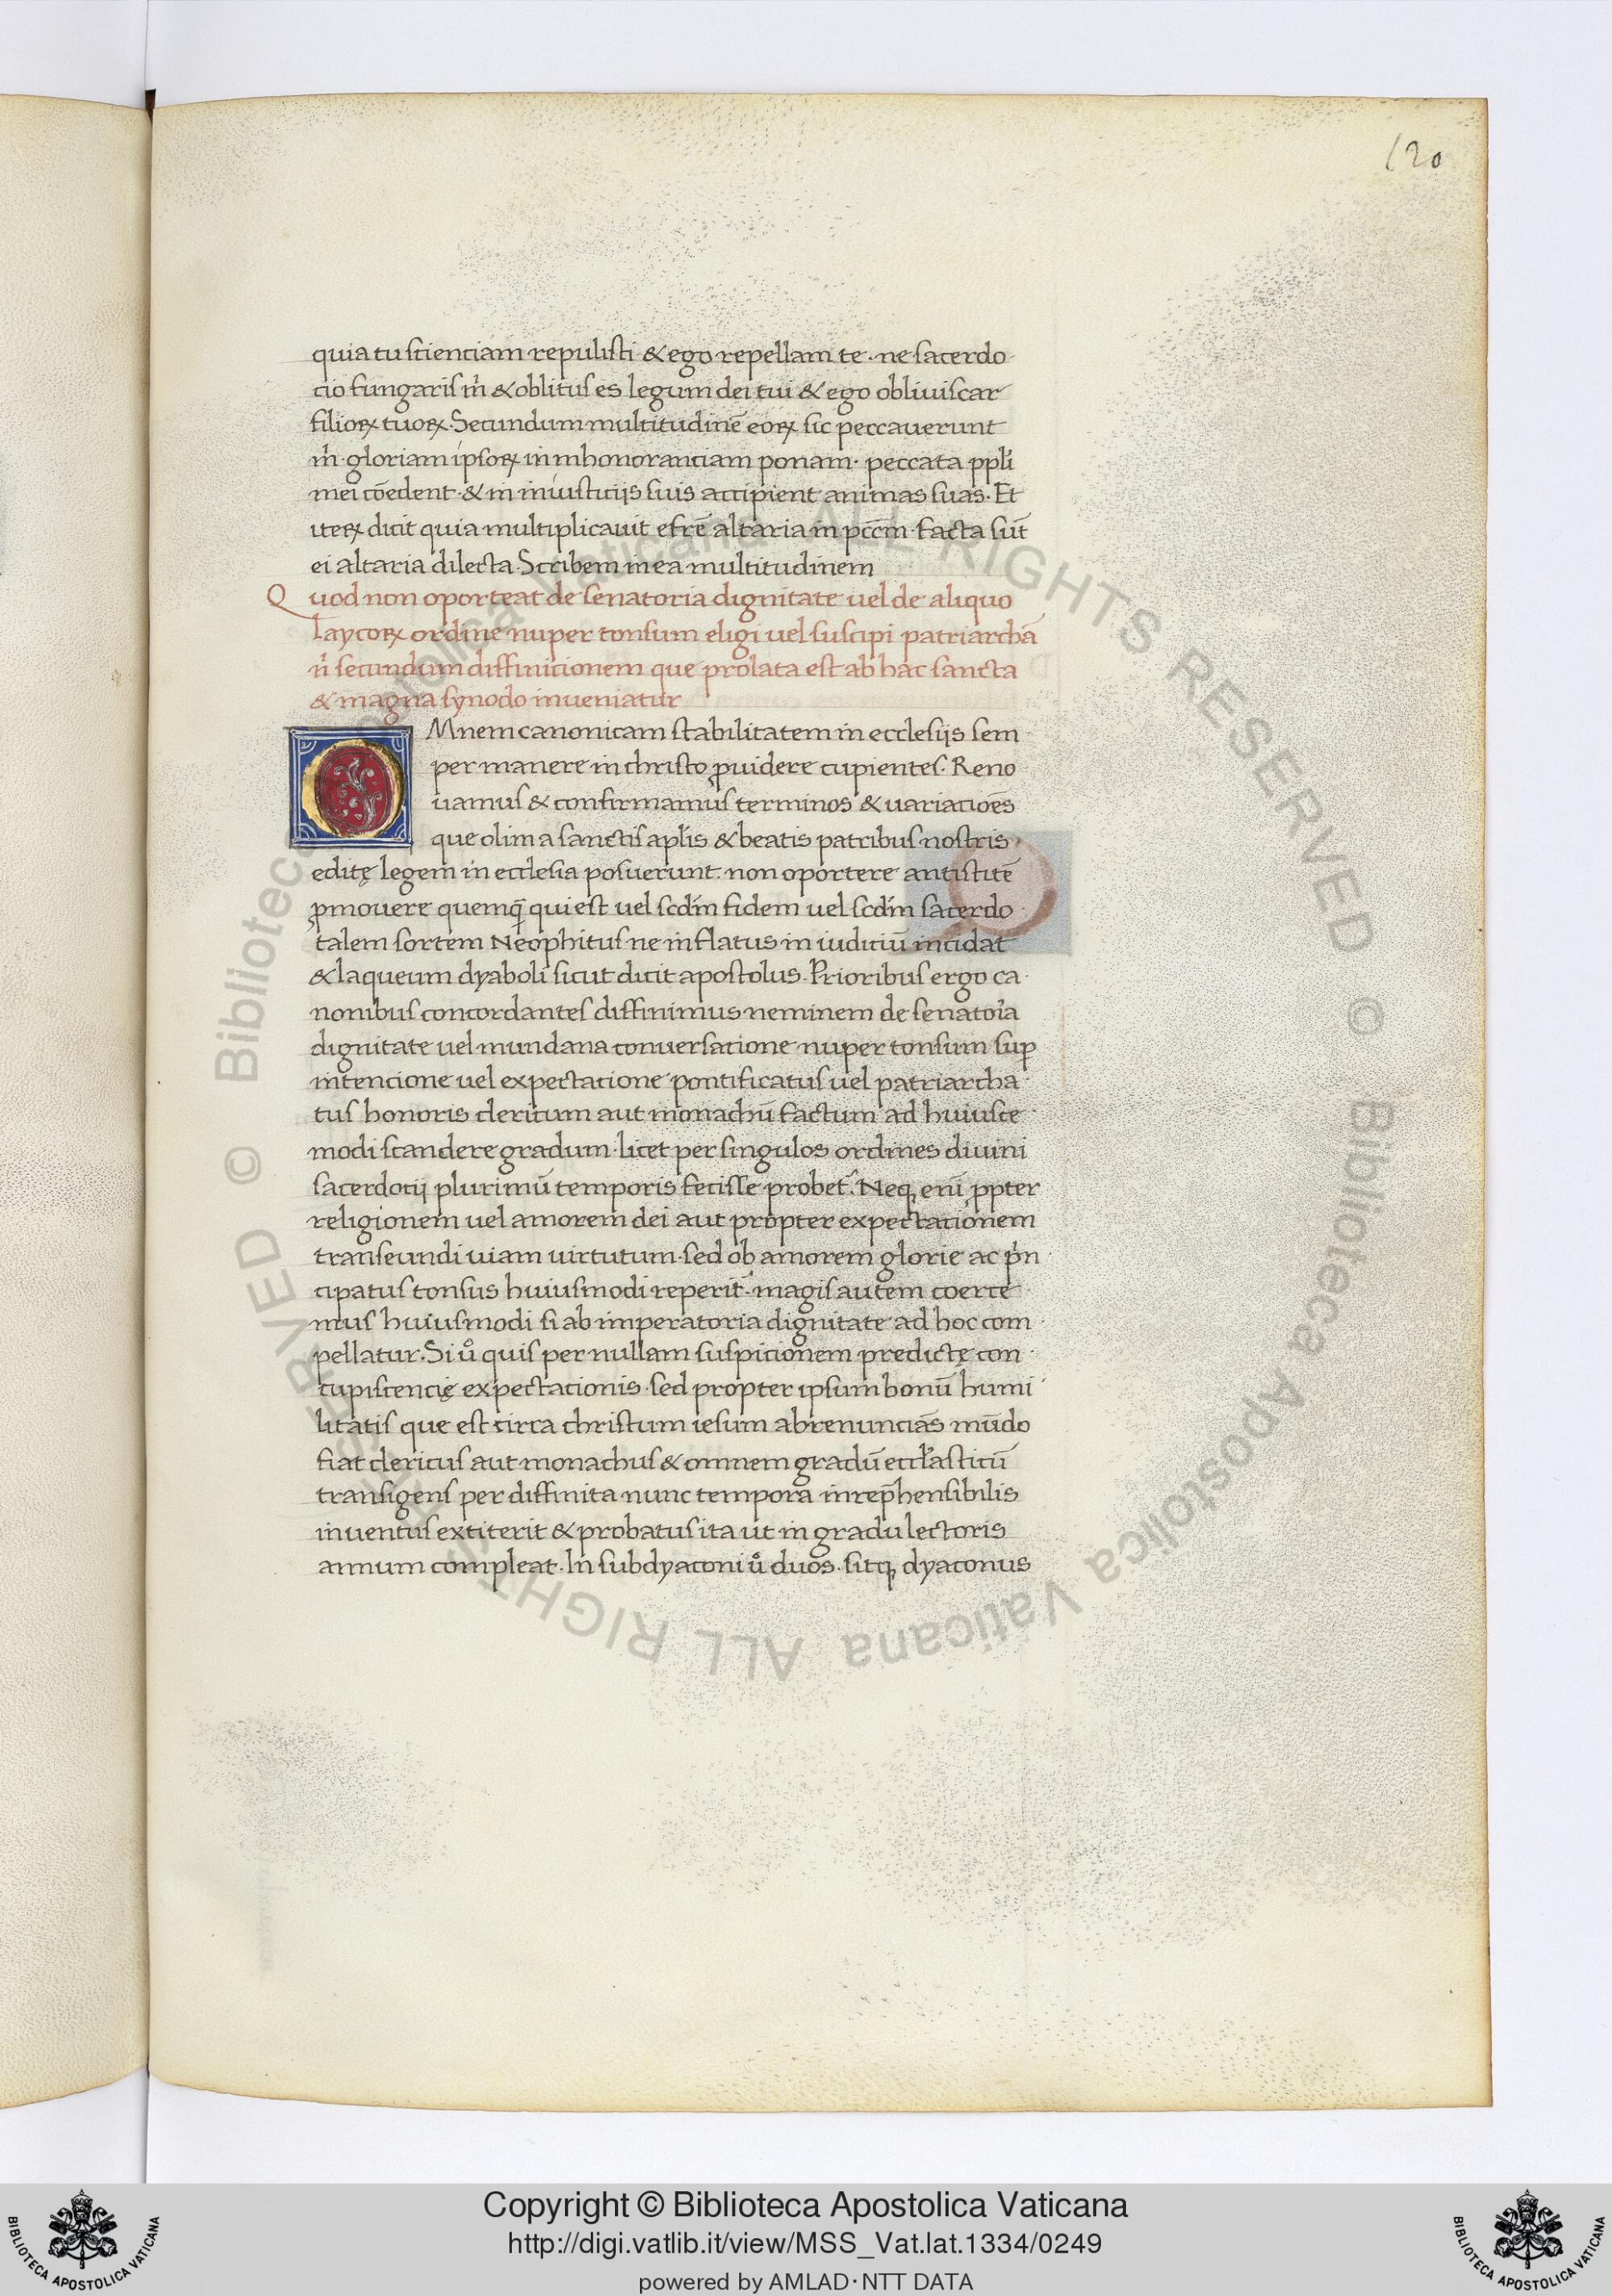 120
quia tu scienciam repulisti & ego repellam te . ne sacerdo
cio fungaris m̉ & oblitus es legum dei tui & ego obliuiscar
filioꝝ tuoꝝ. Secundum multitudinē eoꝝ sic peccauerunt
m̉ gloriam ipsoꝝ in inhonoranciam ponam· peccata ppl̉i
mei cōedent & in iniusticijs suis accipient animas suas. Et
iteꝝ dicit quia multiplicauit efrē altaria in pccm̄ facta sūt
ei altaria dilecta. Scribem in ea multitudinem
Quod non oporteat de senatoria dignitate uel de aliquo
laycoꝝ ordine nuper tonsum eligi uel suscipi patriarchā
n̉ secundum diffinicionem que prolata est ab hac sancta
& magna synodo inueniatur
OMnem canonicam stabilitatem in ecclesijs sem
per manere in christo ꝓuidere cupientes. Reno
uamus & confirmamus terminos & uariacioēs
que olim a sanctis apl̉is & beatis patribus nostris
editę legem in ecclesia posuerunt. non oportere antistitē
ꝓmouere quemq̄ qui est uel scd̉m fidem uel scd̉m sacerdo
talem sortem Neophitus ne inflatus in iudiciū incidat
& laqueum dyaboli sicut dicit apostolus. Prioribus ergo ca
nonibus concordantes diffinimus neminem de senato̓ia
dignitate uel mundana conuersacione nuper tonsum suꝑ
intencione uel expectacione pontificatus uel patriarcha
tus honoris clericum aut monachū factum ad huiusce
modi scandere gradum. licet per singulos ordines diuini
sacerdocij plurimū temporis fecisse probet̉. Neqꝫ eni ꝓpter
religionem uel amorem dei aut propter expectacionem
transeundi uiam uirtutum sed ob amorem glorie ac p̓n
cipatus tonsus huiusmodi reperit̉. magis autem coerce
mus huiusmodi si ab imperatoria dignitate ad hoc com
pellatur. Si uͦ quis per nullam suspicionem predictę con
cupiscencię expectacionis sed propter ipsum bonū humi
litatis que est circa christum iesum abrenunciās mūdo
fiat clericus aut monachus & omnem gradū eccl̉asticū
transigens per diffinita nunc tempora inrep̄hensibilis
inuentus extiterit & probatus ita ut in gradu lectoris
annum compleat. In subdyaconi uͦ duos. sitqꝫ dyaconus
© Biblioteca Apostolica Vaticana ALL RIGHTS RESERVED © Biblioteca Apostolica Vaticana ALL RIGHTS RESERVED
Copyright © Biblioteca Apostolica Vaticana
http://digi.vatlib.it/view/MSS_Vat.lat.1334/0249
powered by AMLAD·NTT DATA
BIBLIOTECA APOSTOLICA VATICANA
BIBLIOTECA APOSTOLICA VATICANA